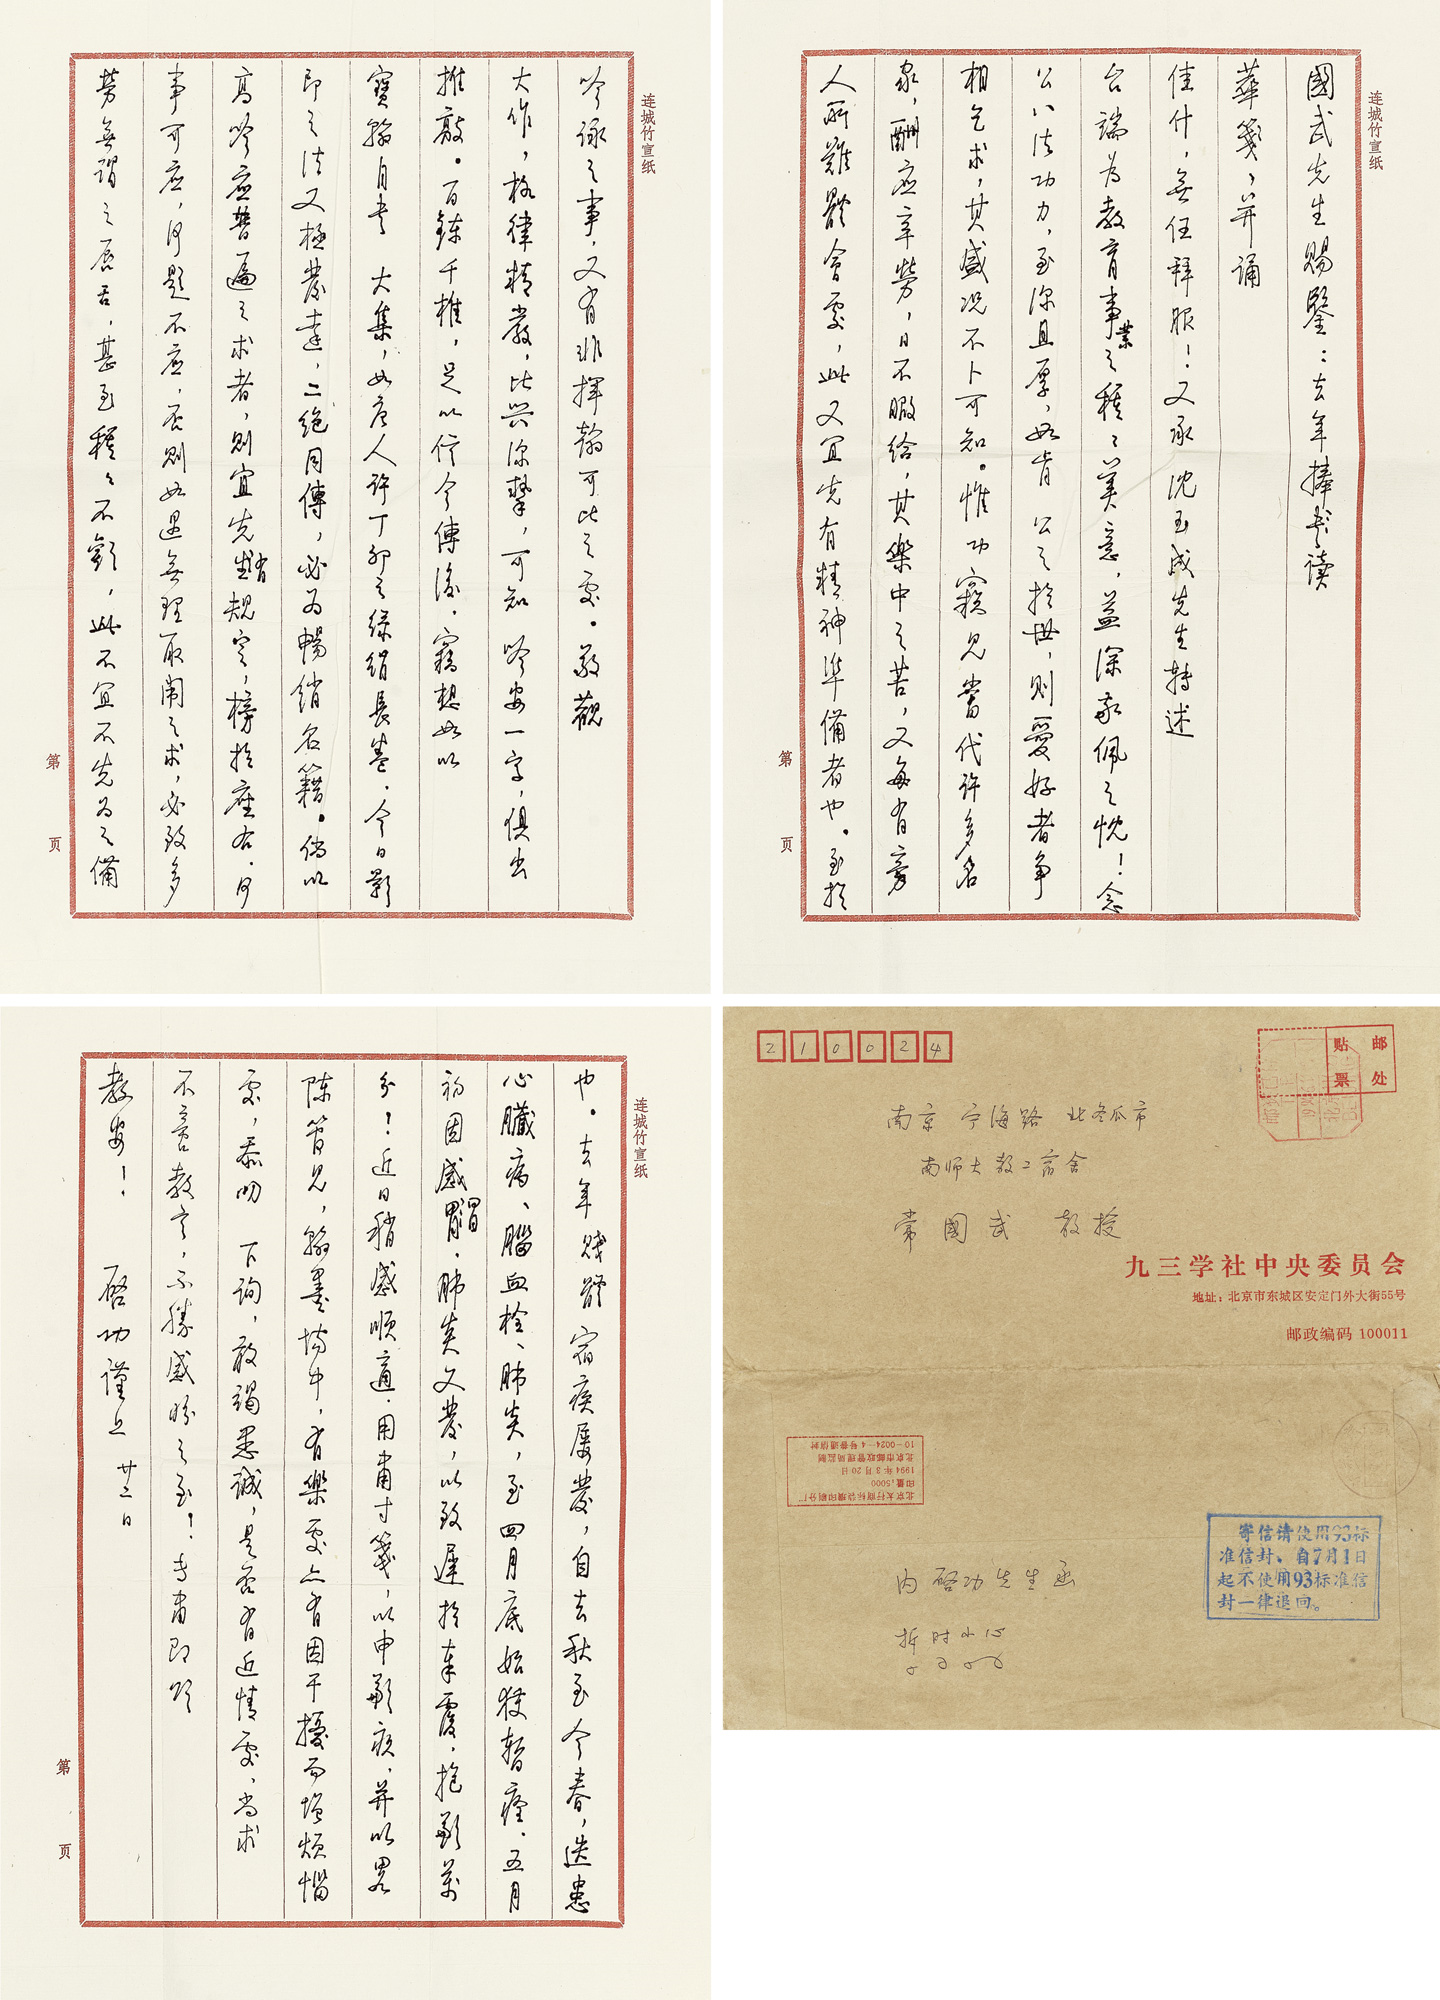 连城竹宣纸
國武先生賜鑒：去年捧讀
華箋，并誦
佳什，無任拜服！又承 沈玉成先生轉述
台端为教育事業之種種美意，益深欽佩之忱！念
公八法功力，至深且厚，如肯 公之於世，则愛好者争
相乞求，其盛况不卜可知。惟功竊見當代许多名
家，酬应辛勞，日不暇给，其樂中之苦，又每有旁
人所難體會處，此又宜先有精神準備者也。至於
第 页
连城竹宣纸
吟詠之事，又有非揮翰可比之處。敬觀
大作，格律精嚴，比興深摯，可知 吟安一字，俱出
推敲。百鍊千椎，足以信今傳後。竊想如以
寶翰自書 大集，如唐人许丁卯之绿绢長卷，今日影
印之法又極發達，二绝同傳，必为暢銷名籍。倘以
高吟应普遍之求者，则宜先有規定，榜於座右。何
事可应，何題不应，否则如遇無理取閙之求，必致多
勞無謂之唇舌，甚至種種不歡，此不宜不先为之備
第 页
连城竹宣纸
也。去年賤體 宿疾屢發，自去秋至今春，迭患
心臟病、腦血栓、肺炎，至四月底始獲暫痊。五月
初因感冒，肺炎又發，以致遲於奉覆，抱歉萬
分！近日稍感順適，用肅寸箋，以申歉疚，并以畧
陳管見，翰墨場中，有樂處亦有因干擾而增煩惱
處，忝叨 下詢，敢竭愚誠，是否有近情處，尚求
不吝教言，不勝感盼之至！专肅即頌
教安！ 啓功謹上 廿二日
第 页
210024
邮 处
贴 票
南京 宁海路 北冬瓜市
南师大教工宿舍
常國武 教授
九三学社中央委员会
地址：北京市东城区安定门外大街55号
邮政编码 100011
北京太行商标装璜印刷分厂
印量，5000
1994年3月20日
北京市邮政管理局监制
10—0024—4号普通信封
寄信请使用93标
准信封、自7月1日
起不使用93标准信
封一律退回。
内 启功先生函
拆时小心